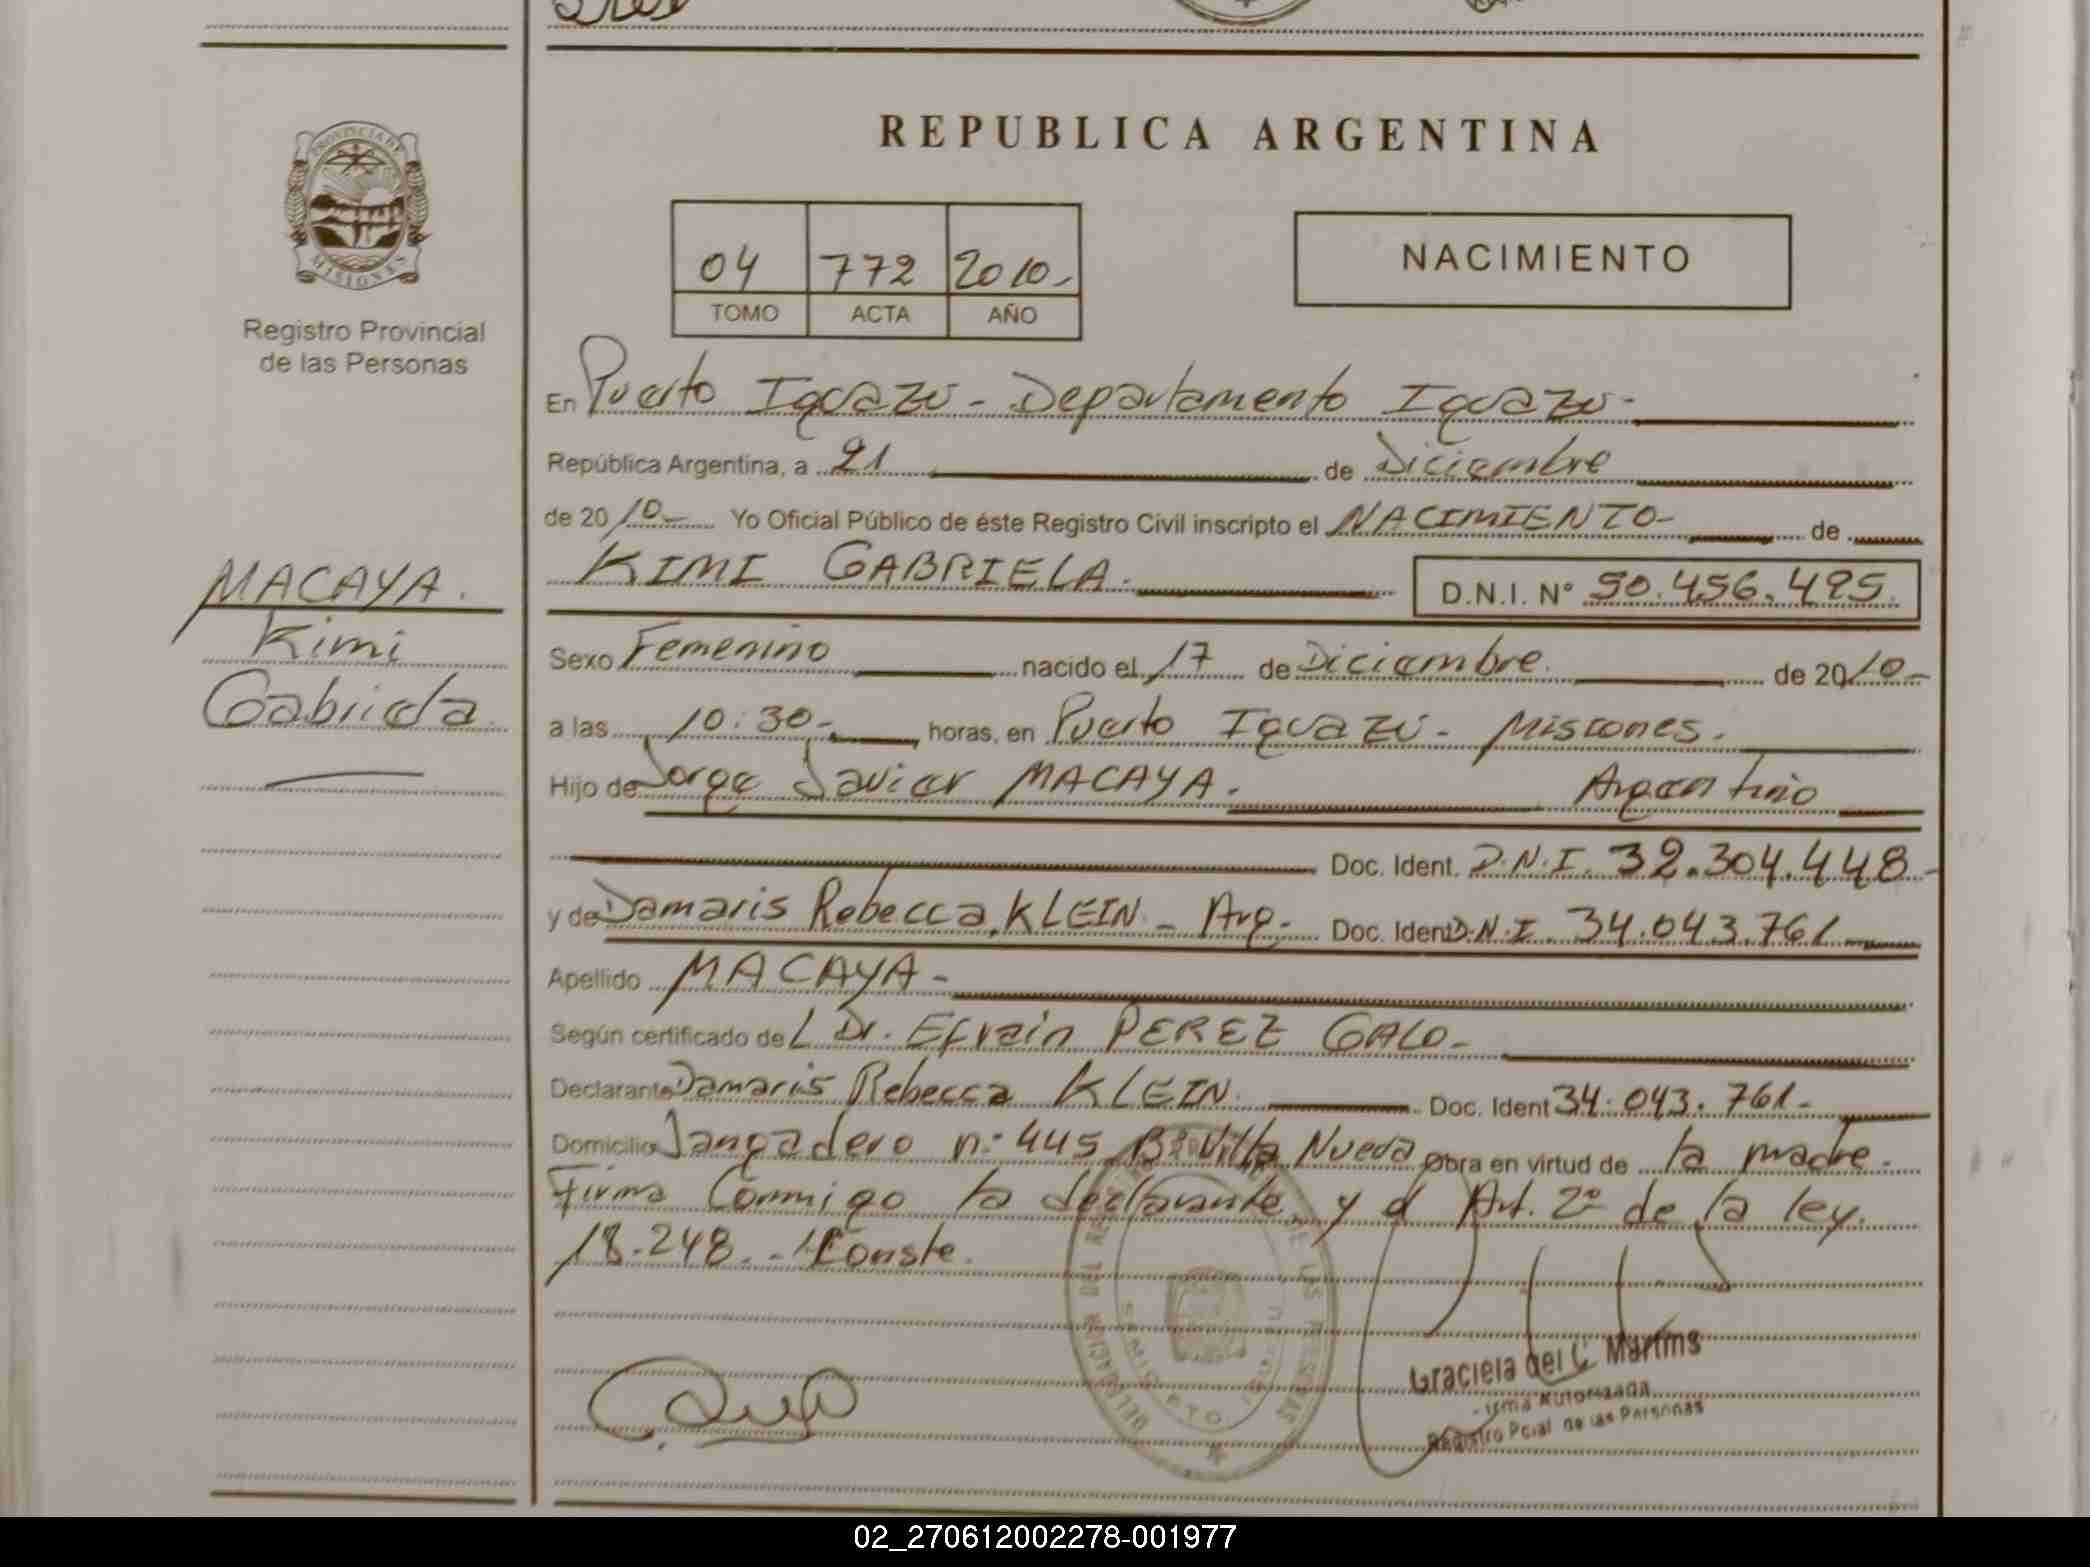 PROVINCIA DE
MISIONES
Registro Provincial
de las Personas
MACAYA.
Kimi
Gabriela
REPUBLICA ARGENTINA
04 772 2010-
TOMO ACTA AÑO
NACIMIENTO
En Puerto Iguazú - Departamento Iguazú -
República Argentina, a 21 de Diciembre
de 2010- Yo Oficial Público de éste Registro Civil inscripto el NACIMIENTO- de
KIMI GABRIELA. D.N.I. Nº 50.456.495.
Sexo Femenino nacido el 17 de Diciembre. de 2010-
a las 10:30- horas, en Puerto Iguazú - Misiones.
Hijo de Jorge Javier MACAYA. Argentino
Doc. Ident. D.N.I. 32.304.448-
y de Damaris Rebecca KLEIN - Arg. Doc. Ident. D.N.I. 34.043.761
Apellido MACAYA-
Según certificado del Dr. Efrain PEREZ GALO-
Declarante Damaris Rebecca KLEIN. Doc. Ident 34.043.761-
Domicilio Jangadero nº 445 Bº Villa Nueva Obra en virtud de la madre.
Firma Conmigo la declarante y el Art. 2º de la ley.
18.248.- Conste.
Graciela del C. Martins
Firma Autorizada
Registro Pcial de las Personas
02_270612002278-001977